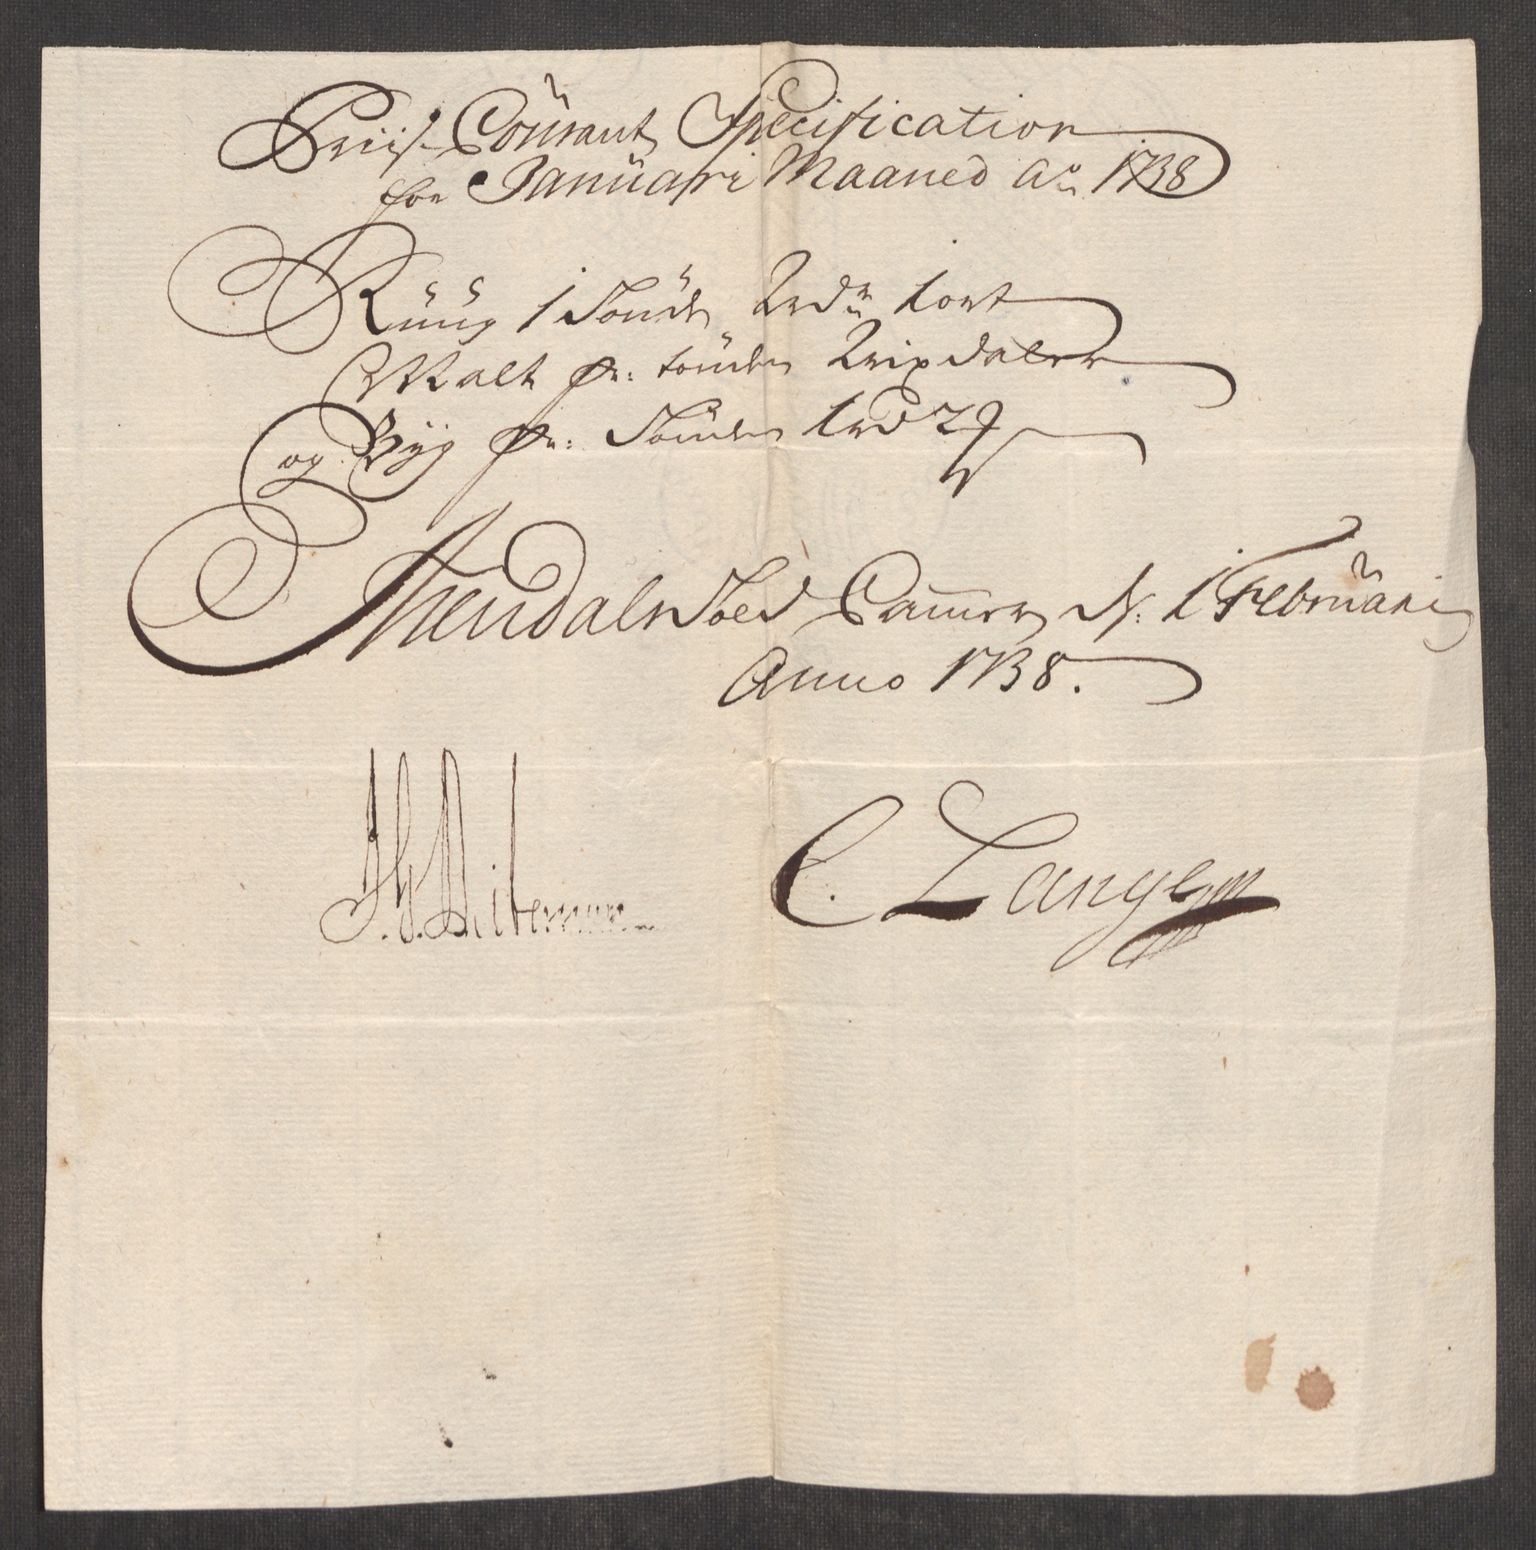 Priis Coürant Specification
for Januari Maaned Ao 1738
Rüüg 1 Tønde 2rdr 1 ort
Malt pr: tønde 2 rixdaler
og Byg pr: Tønde 1rd 2
Arendals Told Cammer d: 1 Februari
Anno 1738.
C. Lange